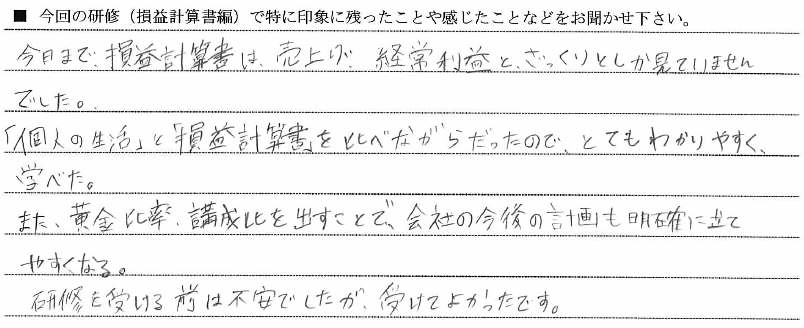 ■ 今回の研修（損益計算書編）で特に印象に残ったことや感じたことなどをお聞かせ下さい。
今日まで、損益計算書は、売上げ、経常利益と、ざっくりとしか見ていません
でした。
「個人の生活」と「損益計算書」を比べながらだったので、とてもわかりやすく、
学べた。
また、黄金比率、講成比を出すことで、会社の今後の計画も明確に立て
やすくなる。
研修を受ける前は不安でしたが、受けてよかったです。